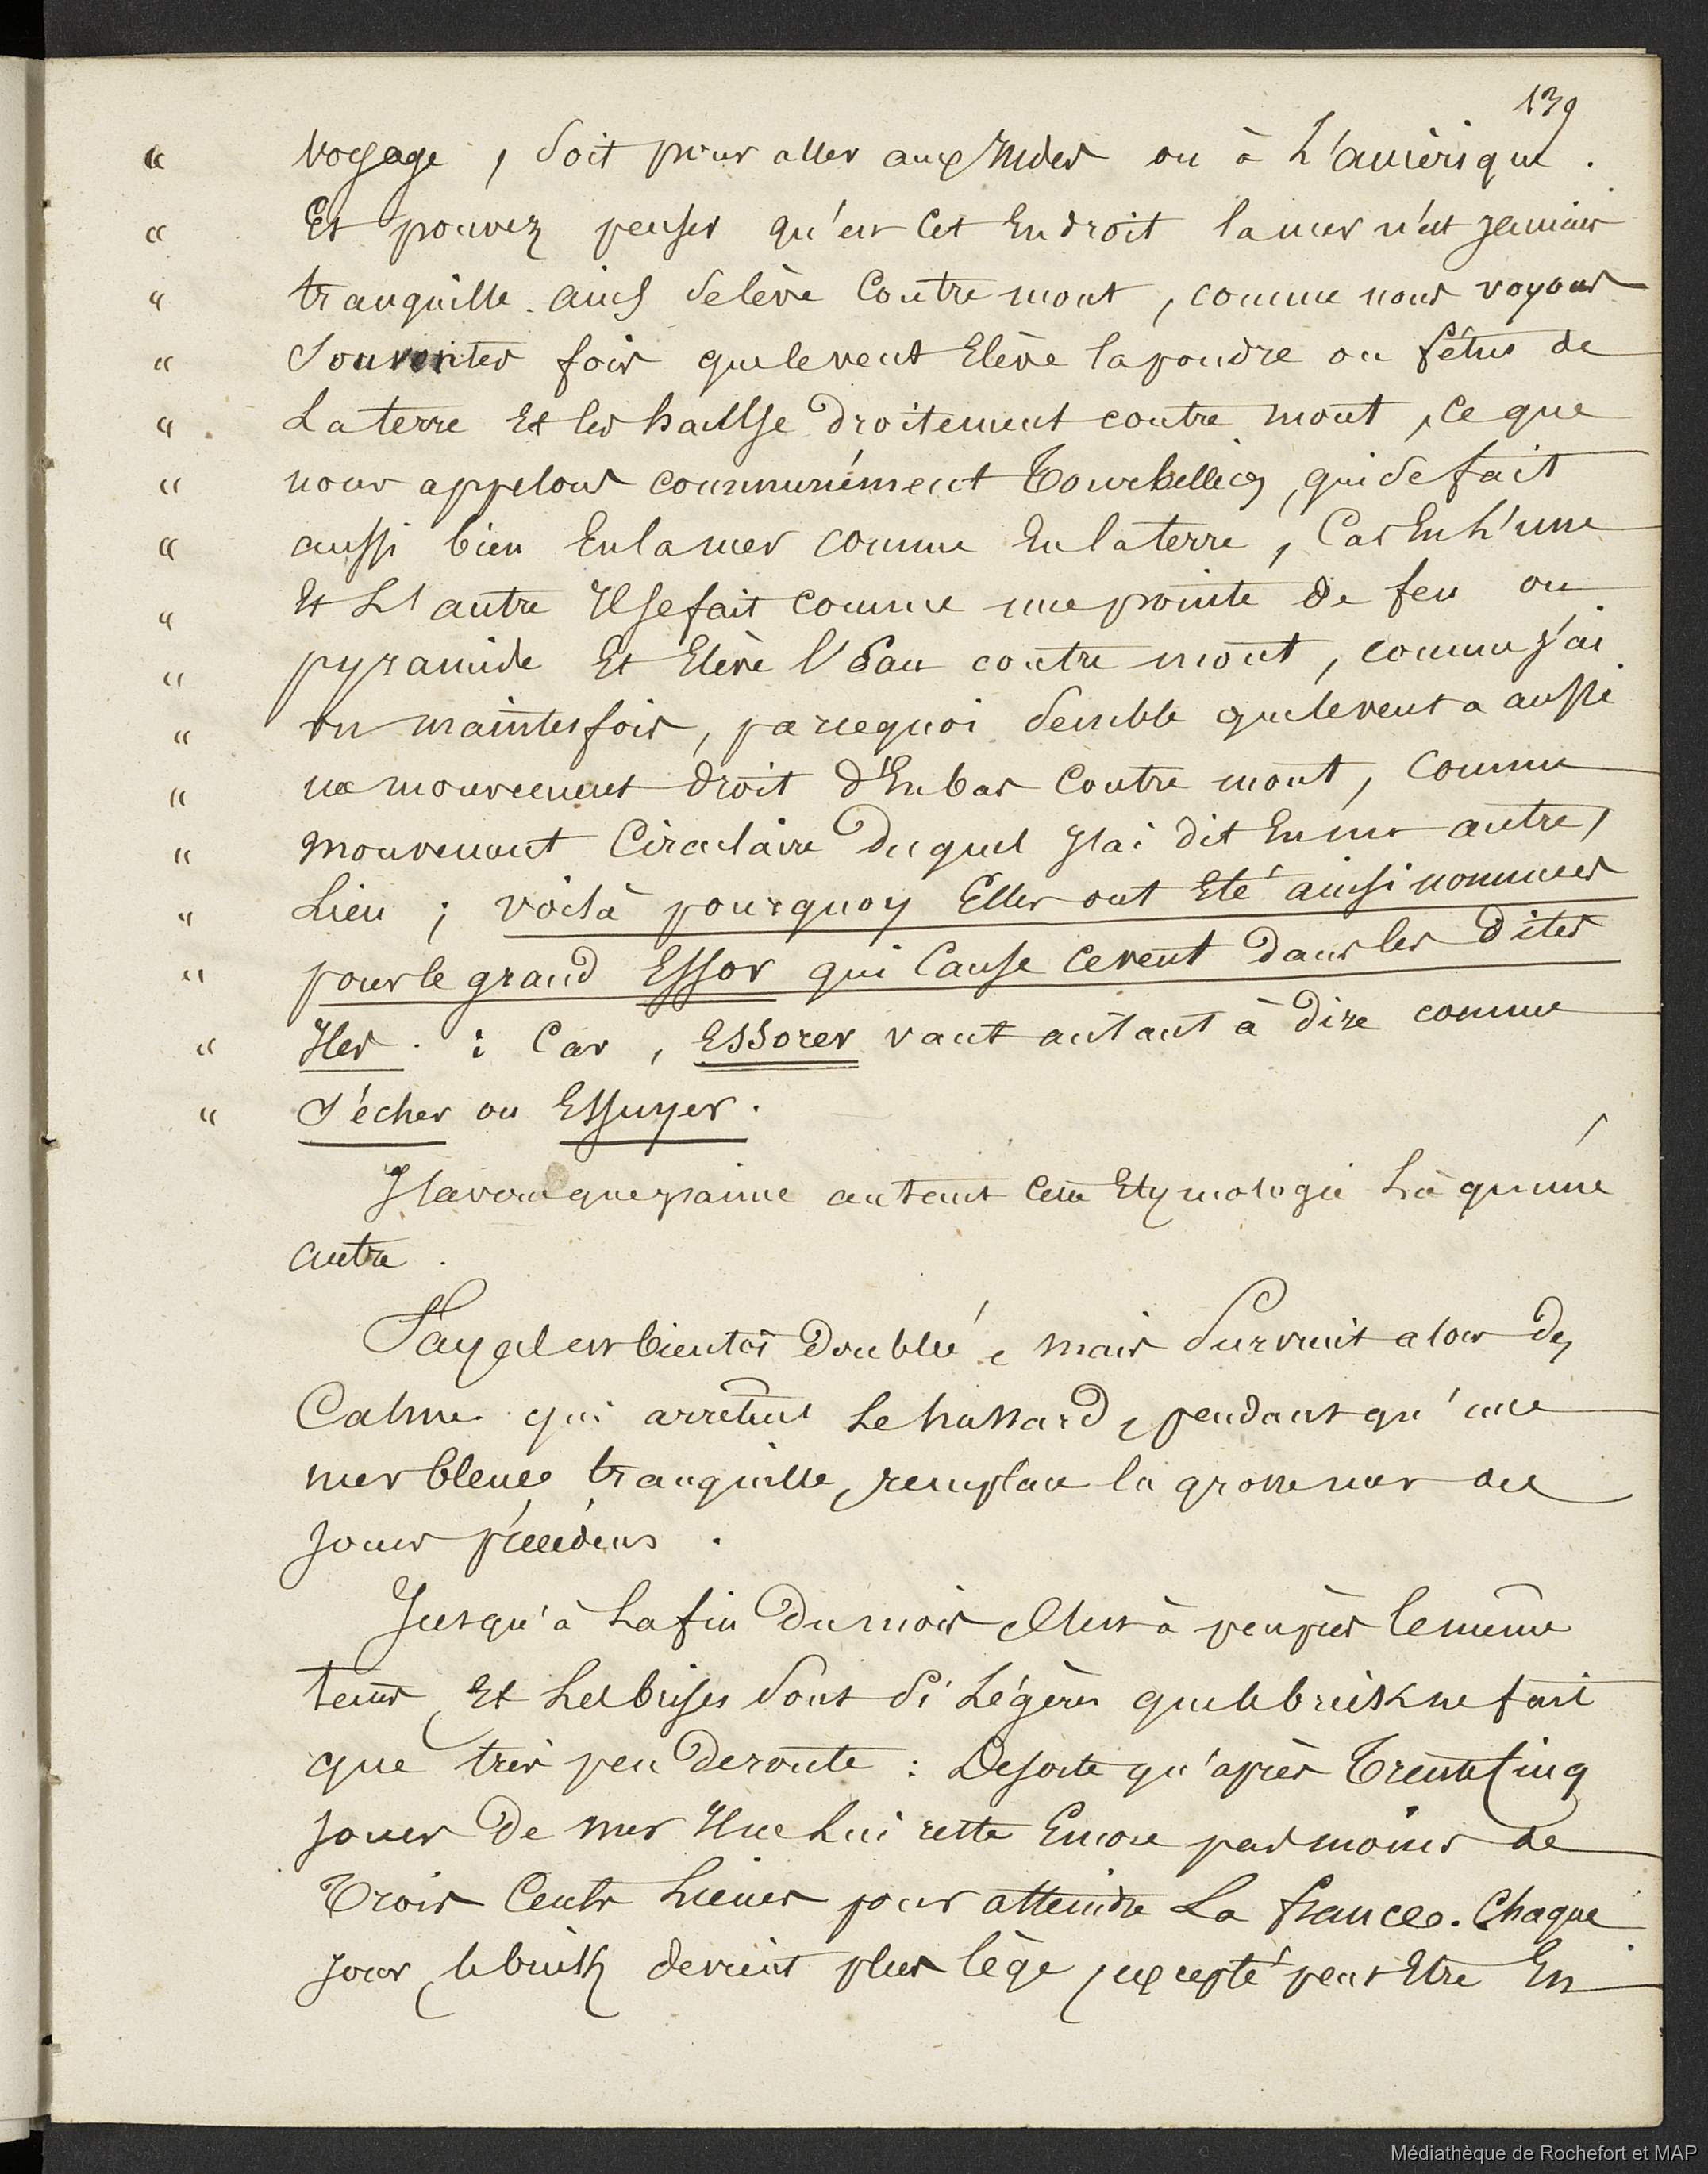 139
« voyage, soit pour aller aux Indes ou à L'amérique.
« Et pouvez penser qu'en Cet Endroit la mer n'est jamais
« tranquille. ains se lève Contre mont, comme nous voyons
« Souventes fois que le vent Elève la poudre ou fétus de
« La terre Et les haulse droitement contre mont, ce que
« nous appelons communément Tourbillion, qui se fait
« aussi bien En la mer comme En la terre, Car En L'une
« Et L'autre Il se fait comme une pointe de feu ou
« pyramide Et Elève l'Eau contre mont, comme j'ai
« vu maintes fois, parcequoi semble que le vent a aussi
« un mouvement droit d'En bas Contre mont, comme
« mouvement Circulaire Duquel J'ai dit En un autre
« Lieu ; voilà pourquoy Elles ont Eté ainsi nommées
« pour le grand Essor qui Cause ce vent Dans les Dites
« Iles : Car, Essorer vaut autant à dire comme
« S'écher ou Essuyer.
J'avoue que j'aime autant Cette Etymologie Là qu'une
autre.
Fayal est bientôt Doublée, mais Survient alors des
Calmes qui arrêtent Le hussard, pendant qu'une
mer bleue, tranquille, remplace la grosse mer des
jours précédens.
Jusqu'à La fin Du mois, C'est à peu près le même
tems, Et Les brises Sont Si Légères que le brick ne fait
que très peu De route : De sorte qu'après Trente Cinq
jours De mer Il ne Lui reste Encore pas moins de
Trois Cents Lieues pour atteindre La france. Chaque
jour, le brick devient plus lège, excepté peut Etre En
Médiathèque de Rochefort et MAP